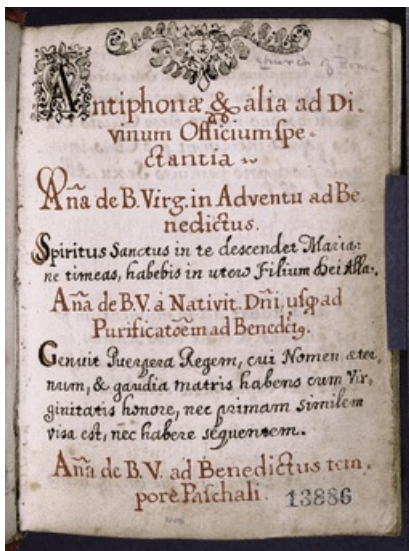 church of Rome
Antiphonæ & alia ad Di-
vinum Officium spe-
ctantia
Aña de B. Virg. in Adventu ad Be
nedictus.
Spiritus Sanctus in te descendet Maria:
ne timeas, habebis in utero Filium Dei Alla.
Aña de B.V. à Nativit. Dñi, usq ad
Purificatõem ad Bened&ctilde;9.
Genuit Puerpera Regem, cui Nomen æter-
num, & gaudia matris habens cum Vir-
ginitatis honore, nec primam similem
visa est, nec habere sequentem.
Aña de B.V. ad Benedictus tem-
pore Paschali.
13886